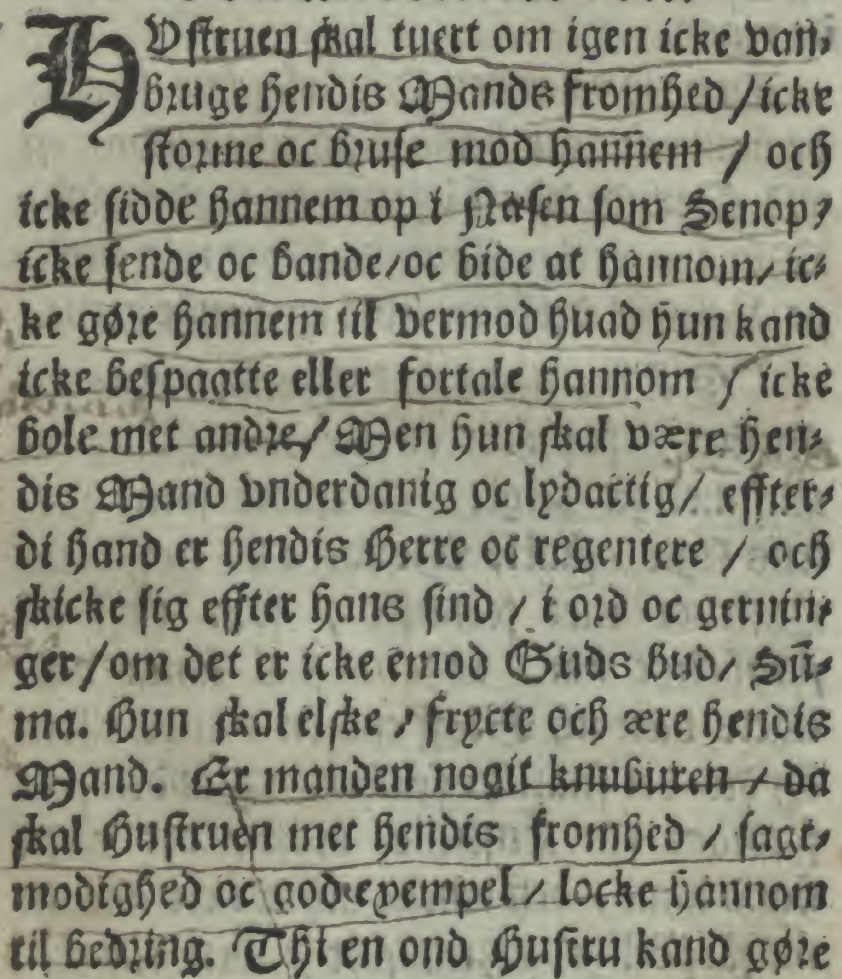 HVstruen skal tuert om igen icke van⸗
bruge hendis Mands fromhed /icke
storme oc bruse mod hannem / och
icke sidde hannem op i Næsen som Senop/
icke sende oc bande/oc bide at hannom/ ic⸗
ke gøre hannem til vermod huad hun kand
icke bespaatte eller fortale hannom / icke
bole met andre/ Men hun skal være hen⸗
dis Mand vnderdanig oc lydactig/ effter⸗
di hand er hendis Herre oc regentere / och
skicke sig effter hans sind / i ord oc gernin⸗
ger/om det er icke emod Guds bud/ Sū⸗
ma. Hun skal elske / frycte och ære hendis
Mand. Er manden nogit knuburen / da
skal Hustruen met hendis fromhed / sagt⸗
modighed oc god exempel / locke hannom
til bedring. Thi en ond Hustru kand gøre